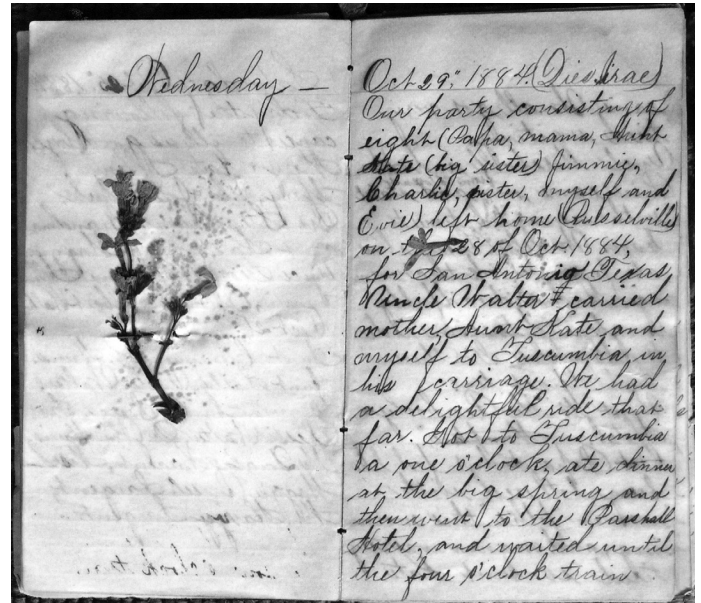 Wednesday —
Oct 29", 1884. (Dies Irae)
Our party consisting of
eight (Papa, mama, Aunt
Kate (big sister) Jimmie,
Charlie, sister, myself and
Evie) left home (Russelville)
on 28 of Oct. 1884,
for San Antonio Texas
Uncle Walter carried
mother, Aunt Kate and
myself to Tuscumbia in
his carriage. We had
a delightful ride that
far. Got to Tuscumbia
a one o'clock, ate dinner
at the big spring and
then went to the Parshall
Hotel, and waited until
the four o'clock train